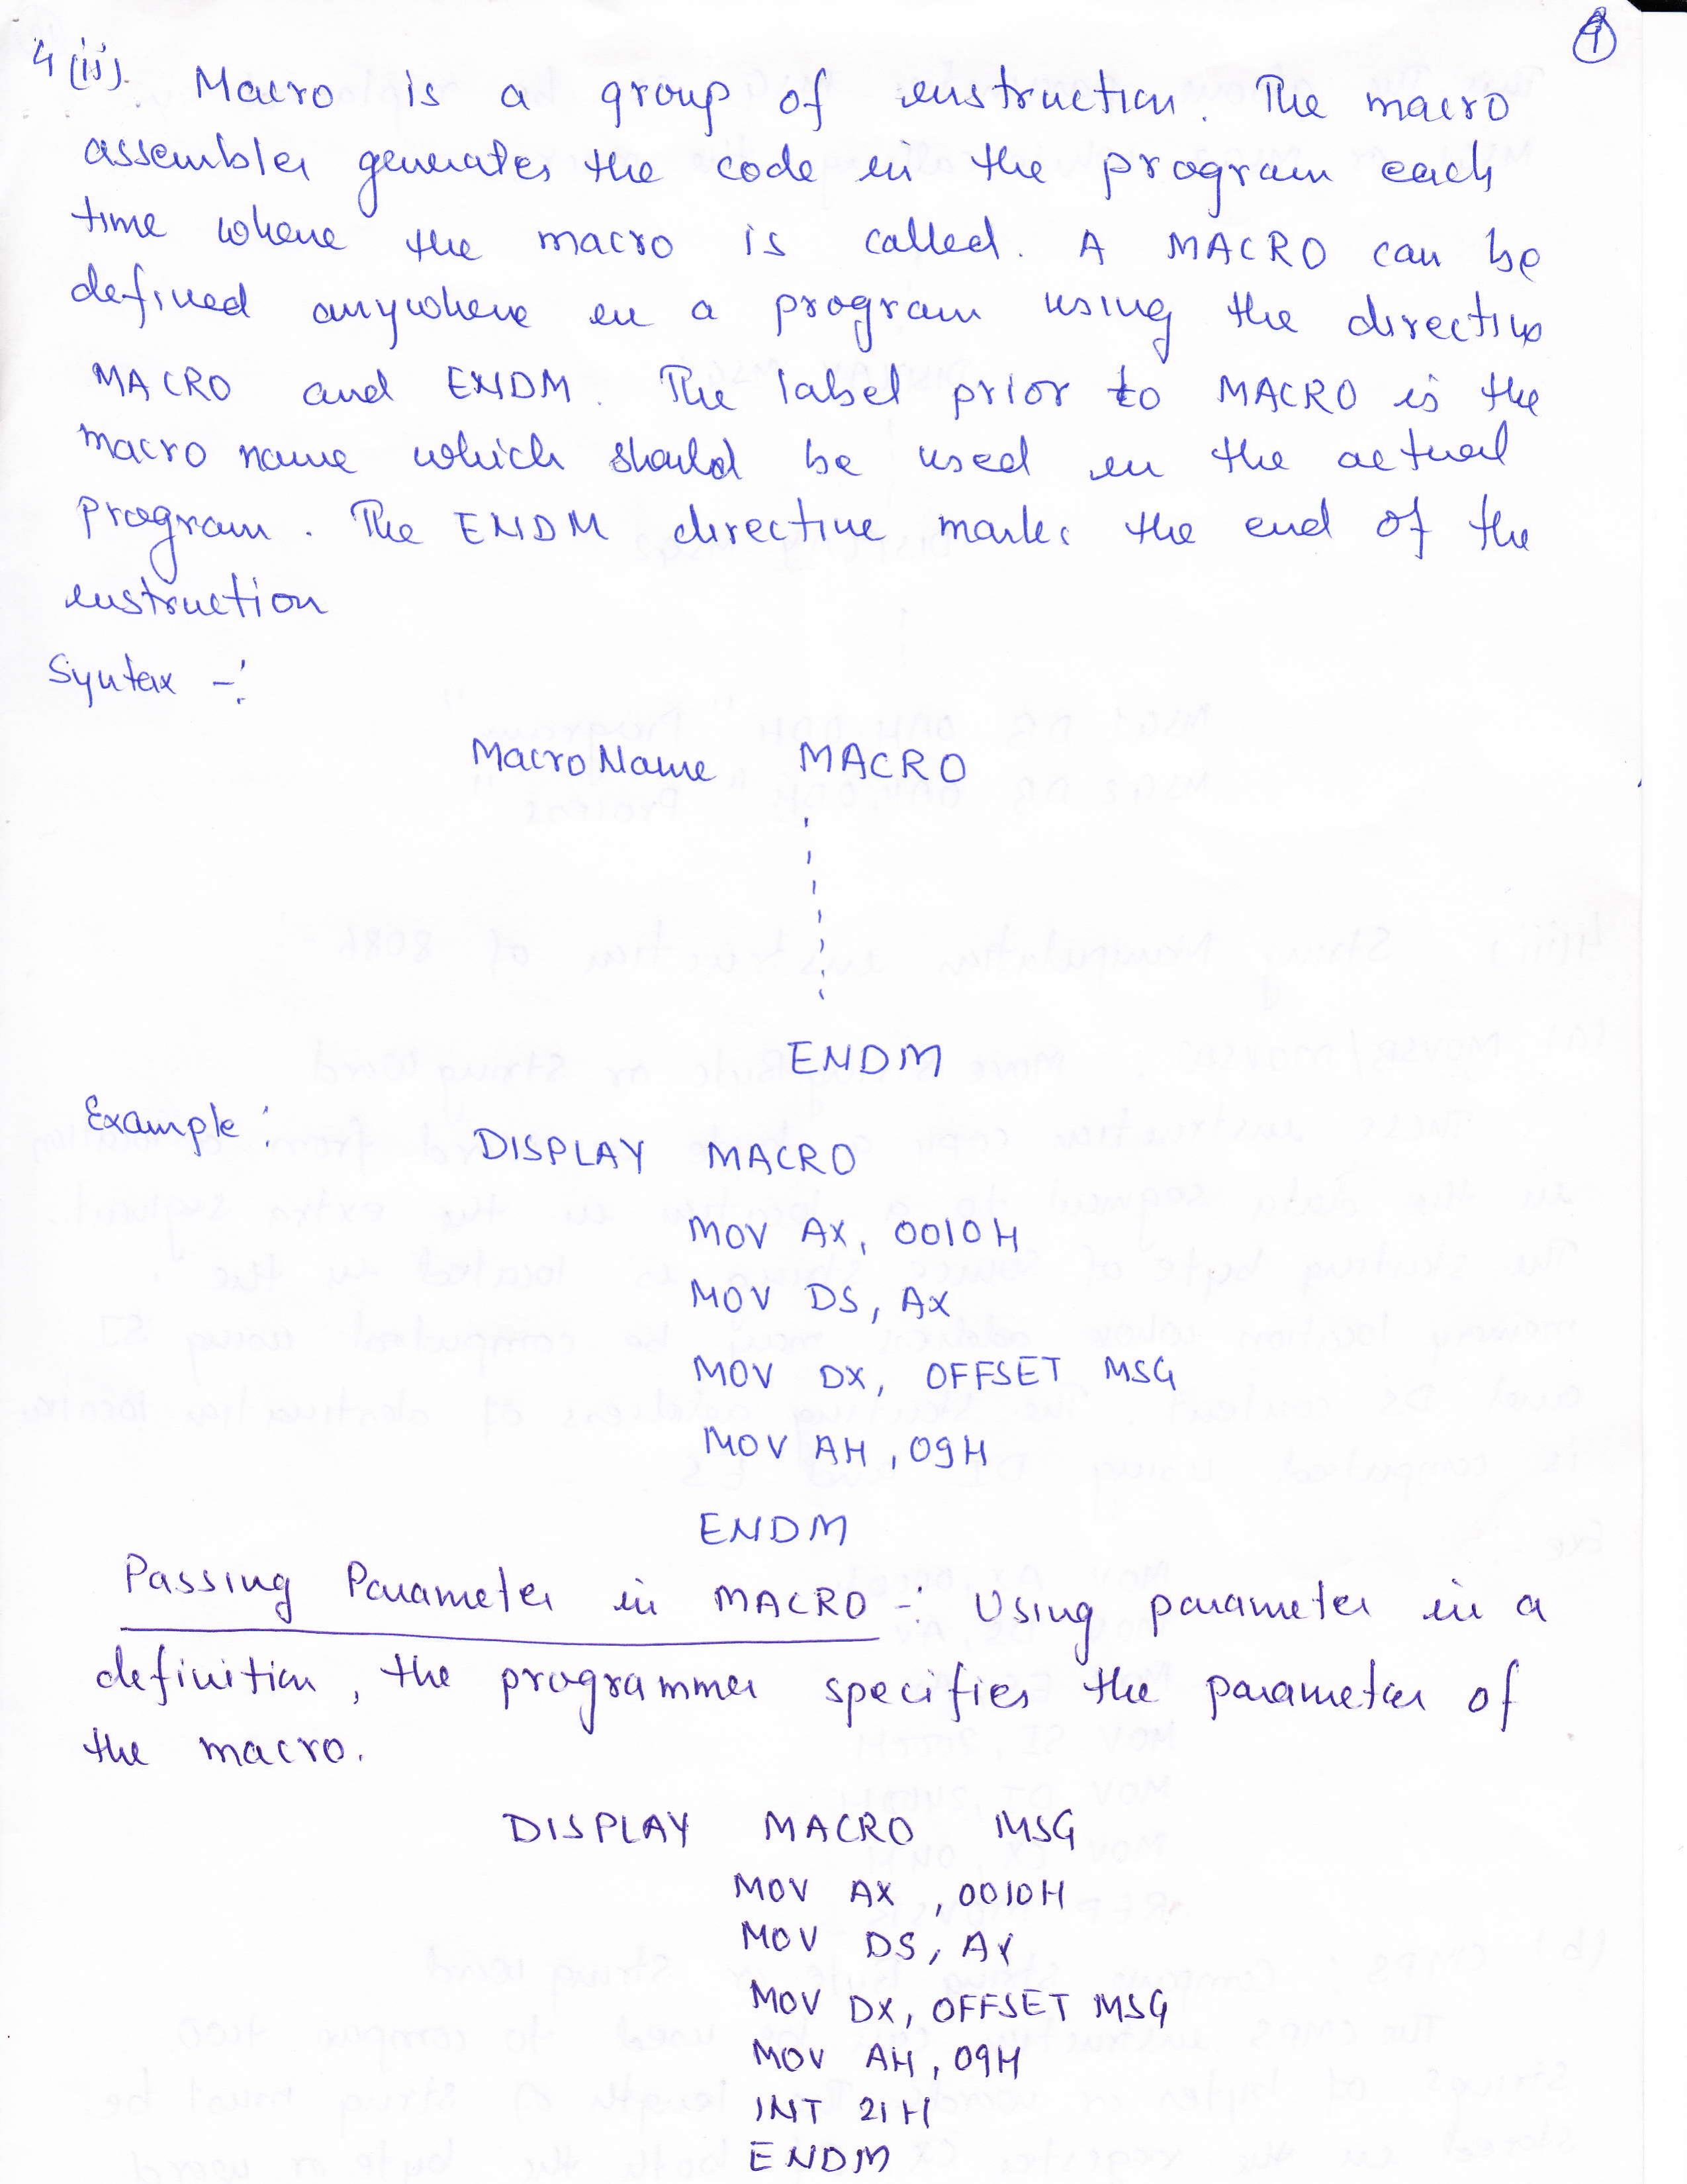 4(ii). Macro is a group of instruction. The macro
assembler generates the code in the program each
time where the macro is called. A MACRO can be
defined anywhere in a program using the directive
MACRO and ENDM. The label prior to MACRO is the
macro name which should be used in the actual
program. The ENDM directive marks the end of the
instruction
Syntax -:
Macro Name MACRO
ENDM
Example :
DISPLAY MACRO
MOV AX, 0010H
MOV DS, AX
MOV DX, OFFSET MSG
MOV AH, 09H
ENDM
Passing Parameter in MACRO -: Using parameter in a
definition, the programmer specifies the parameter of
the macro.
DISPLAY MACRO MSG
MOV AX, 0010H
MOV DS, AX
MOV DX, OFFSET MSG
MOV AH, 09H
INT 21H
ENDM